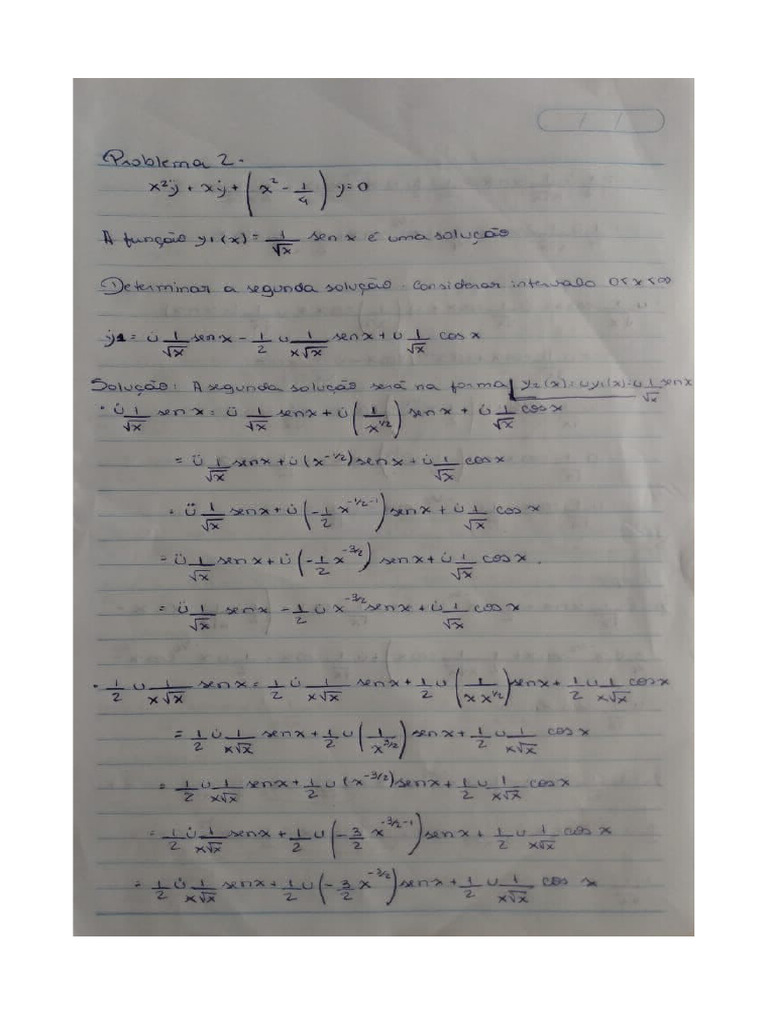 / /
Problema 2.
x²ÿ + xẏ + (x² - 1/4) y = 0
A função y₁(x) = 1/√x sen x é uma solução
① Determinar a segunda solução. Considerar intervalo 0<x<∞
ẏ₂ = u̇ 1/√x sen x - 1/2 u 1/x√x sen x + u 1/√x cos x
Solução: A segunda solução será na forma y₂(x) = uy₁(x) = u 1/√x sen x
• u̇ 1/√x sen x = ü 1/√x sen x + u̇ (1/x^1/2) sen x + u̇ 1/√x cos x
= ü 1/√x sen x + u̇ (x^-1/2) sen x + u̇ 1/√x cos x
= ü 1/√x sen x + u̇ (-1/2 x^-1/2-1) sen x + u̇ 1/√x cos x
= ü 1/√x sen x + u̇ (-1/2 x^-3/2) sen x + u̇ 1/√x cos x.
= ü 1/√x sen x - 1/2 u̇ x^-3/2 sen x + u̇ 1/√x cos x
• 1/2 u 1/x√x sen x = 1/2 u̇ 1/x√x sen x + 1/2 u (1/x x^1/2) sen x + 1/2 u 1/x√x cos x
= 1/2 u̇ 1/x√x sen x + 1/2 u (1/x^3/2) sen x + 1/2 u 1/x√x cos x
= 1/2 u̇ 1/x√x sen x + 1/2 u (x^-3/2) sen x + 1/2 u 1/x√x cos x
= 1/2 u̇ 1/x√x sen x + 1/2 u (-3/2 x^-3/2-1) sen x + 1/2 u 1/x√x cos x
= 1/2 u̇ 1/x√x sen x + 1/2 u (-3/2 x^-3/2) sen x + 1/2 u 1/x√x cos x